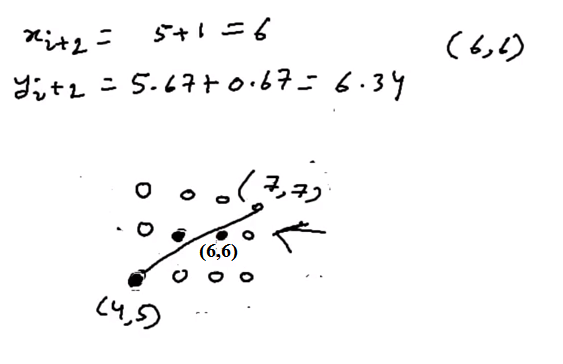 xi+2 = 5+1 = 6 (6,6)
yi+2 = 5.67+0.67 = 6.34
(7,7)
(6,6)
(4,5)